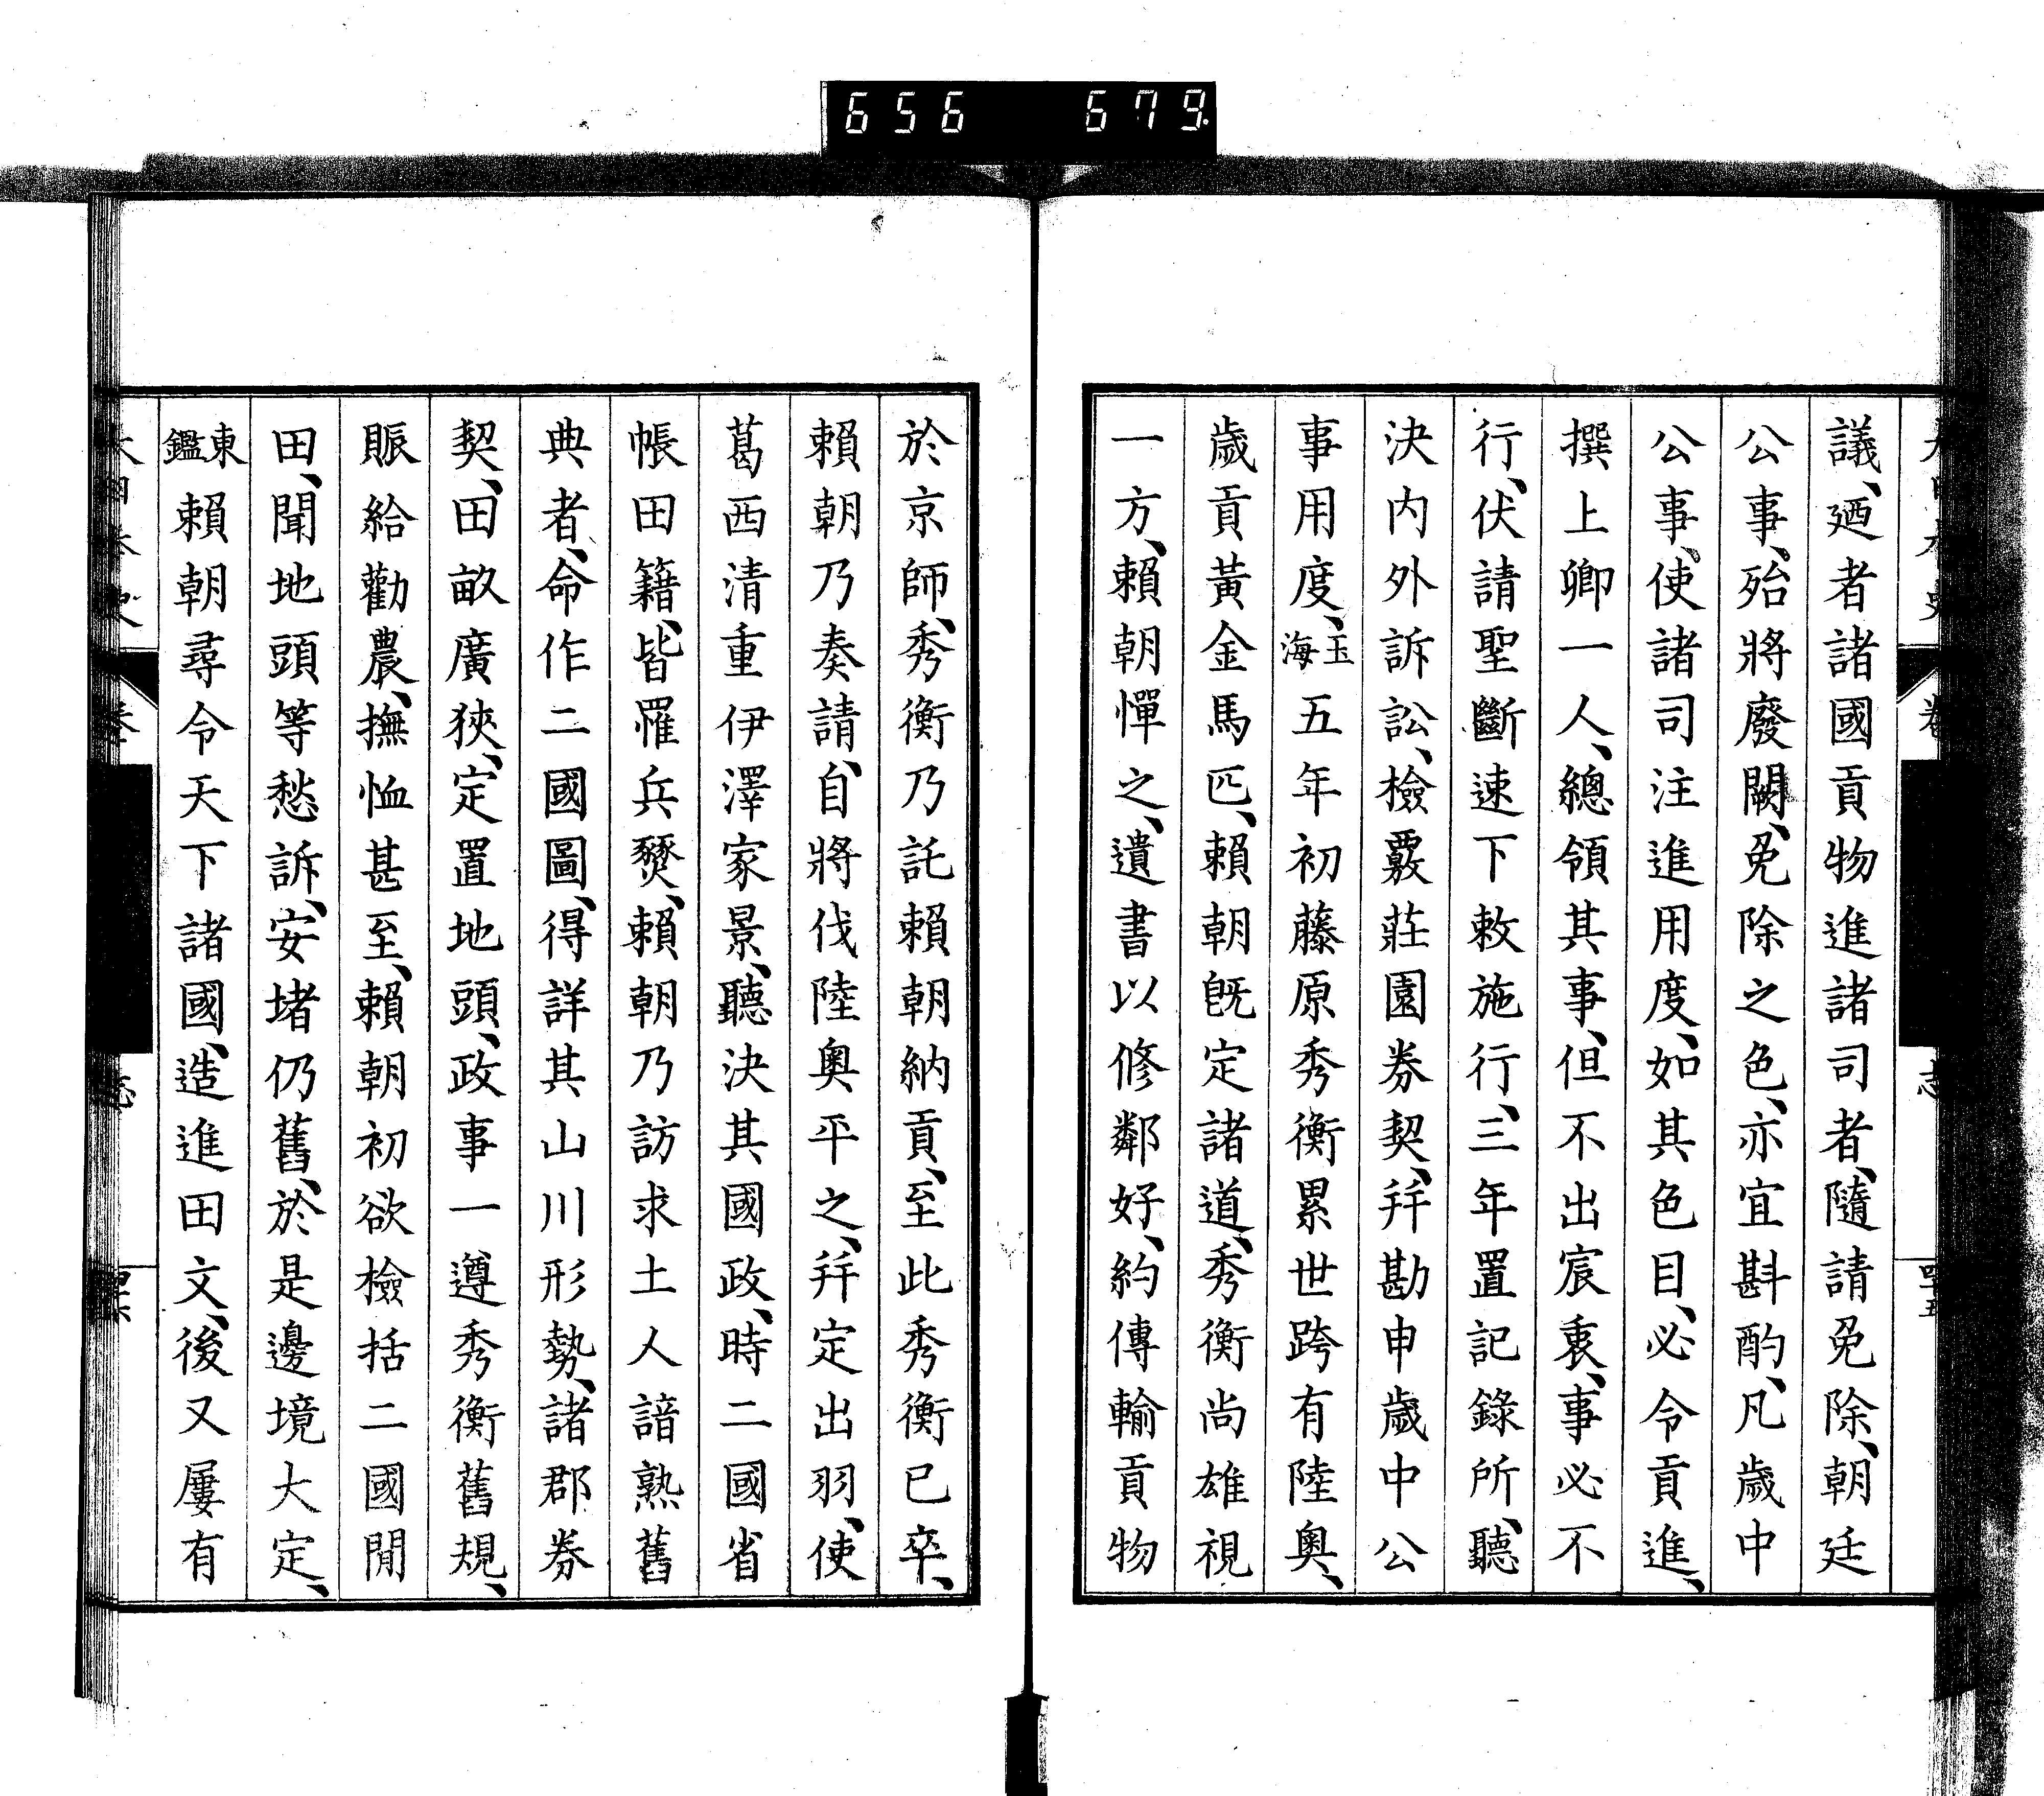 656 679.
議、廼者諸國貢物進諸司者、隨請免除、朝廷
公事、殆將廢闕、免除之色、亦宜斟酌、凡歲中
公事、使諸司注進用度、如其色目、必令貢進、
撰上卿一人、總領其事、但不出宸衷、事必不
行、伏請聖斷速下敕施行、三年置記錄所、聽
決内外訴訟、檢覈莊園券契、幷勘申歲中公
事用度、玉海五年初藤原秀衡累世跨有陸奧、
歲貢黃金馬匹、賴朝旣定諸道、秀衡尚雄視
一方、賴朝憚之、遺書以修鄰好、約傳輸貢物
於京師、秀衡乃託賴朝納貢、至此秀衡已卒、
賴朝乃奏請、自將伐陸奧平之、幷定出羽、使
葛西清重伊澤家景、聽決其國政、時二國省
帳田籍、皆罹兵燹、賴朝乃訪求土人諳熟舊
典者、命作二國圖、得詳其山川形勢、諸郡券
契、田畝廣狹、定置地頭、政事一遵秀衡舊規、
賑給勸農、撫恤甚至、賴朝初欲檢括二國閒
田、聞地頭等愁訴、安堵仍舊、於是邊境大定、
東鑑賴朝尋令天下諸國、造進田文、後又屢有